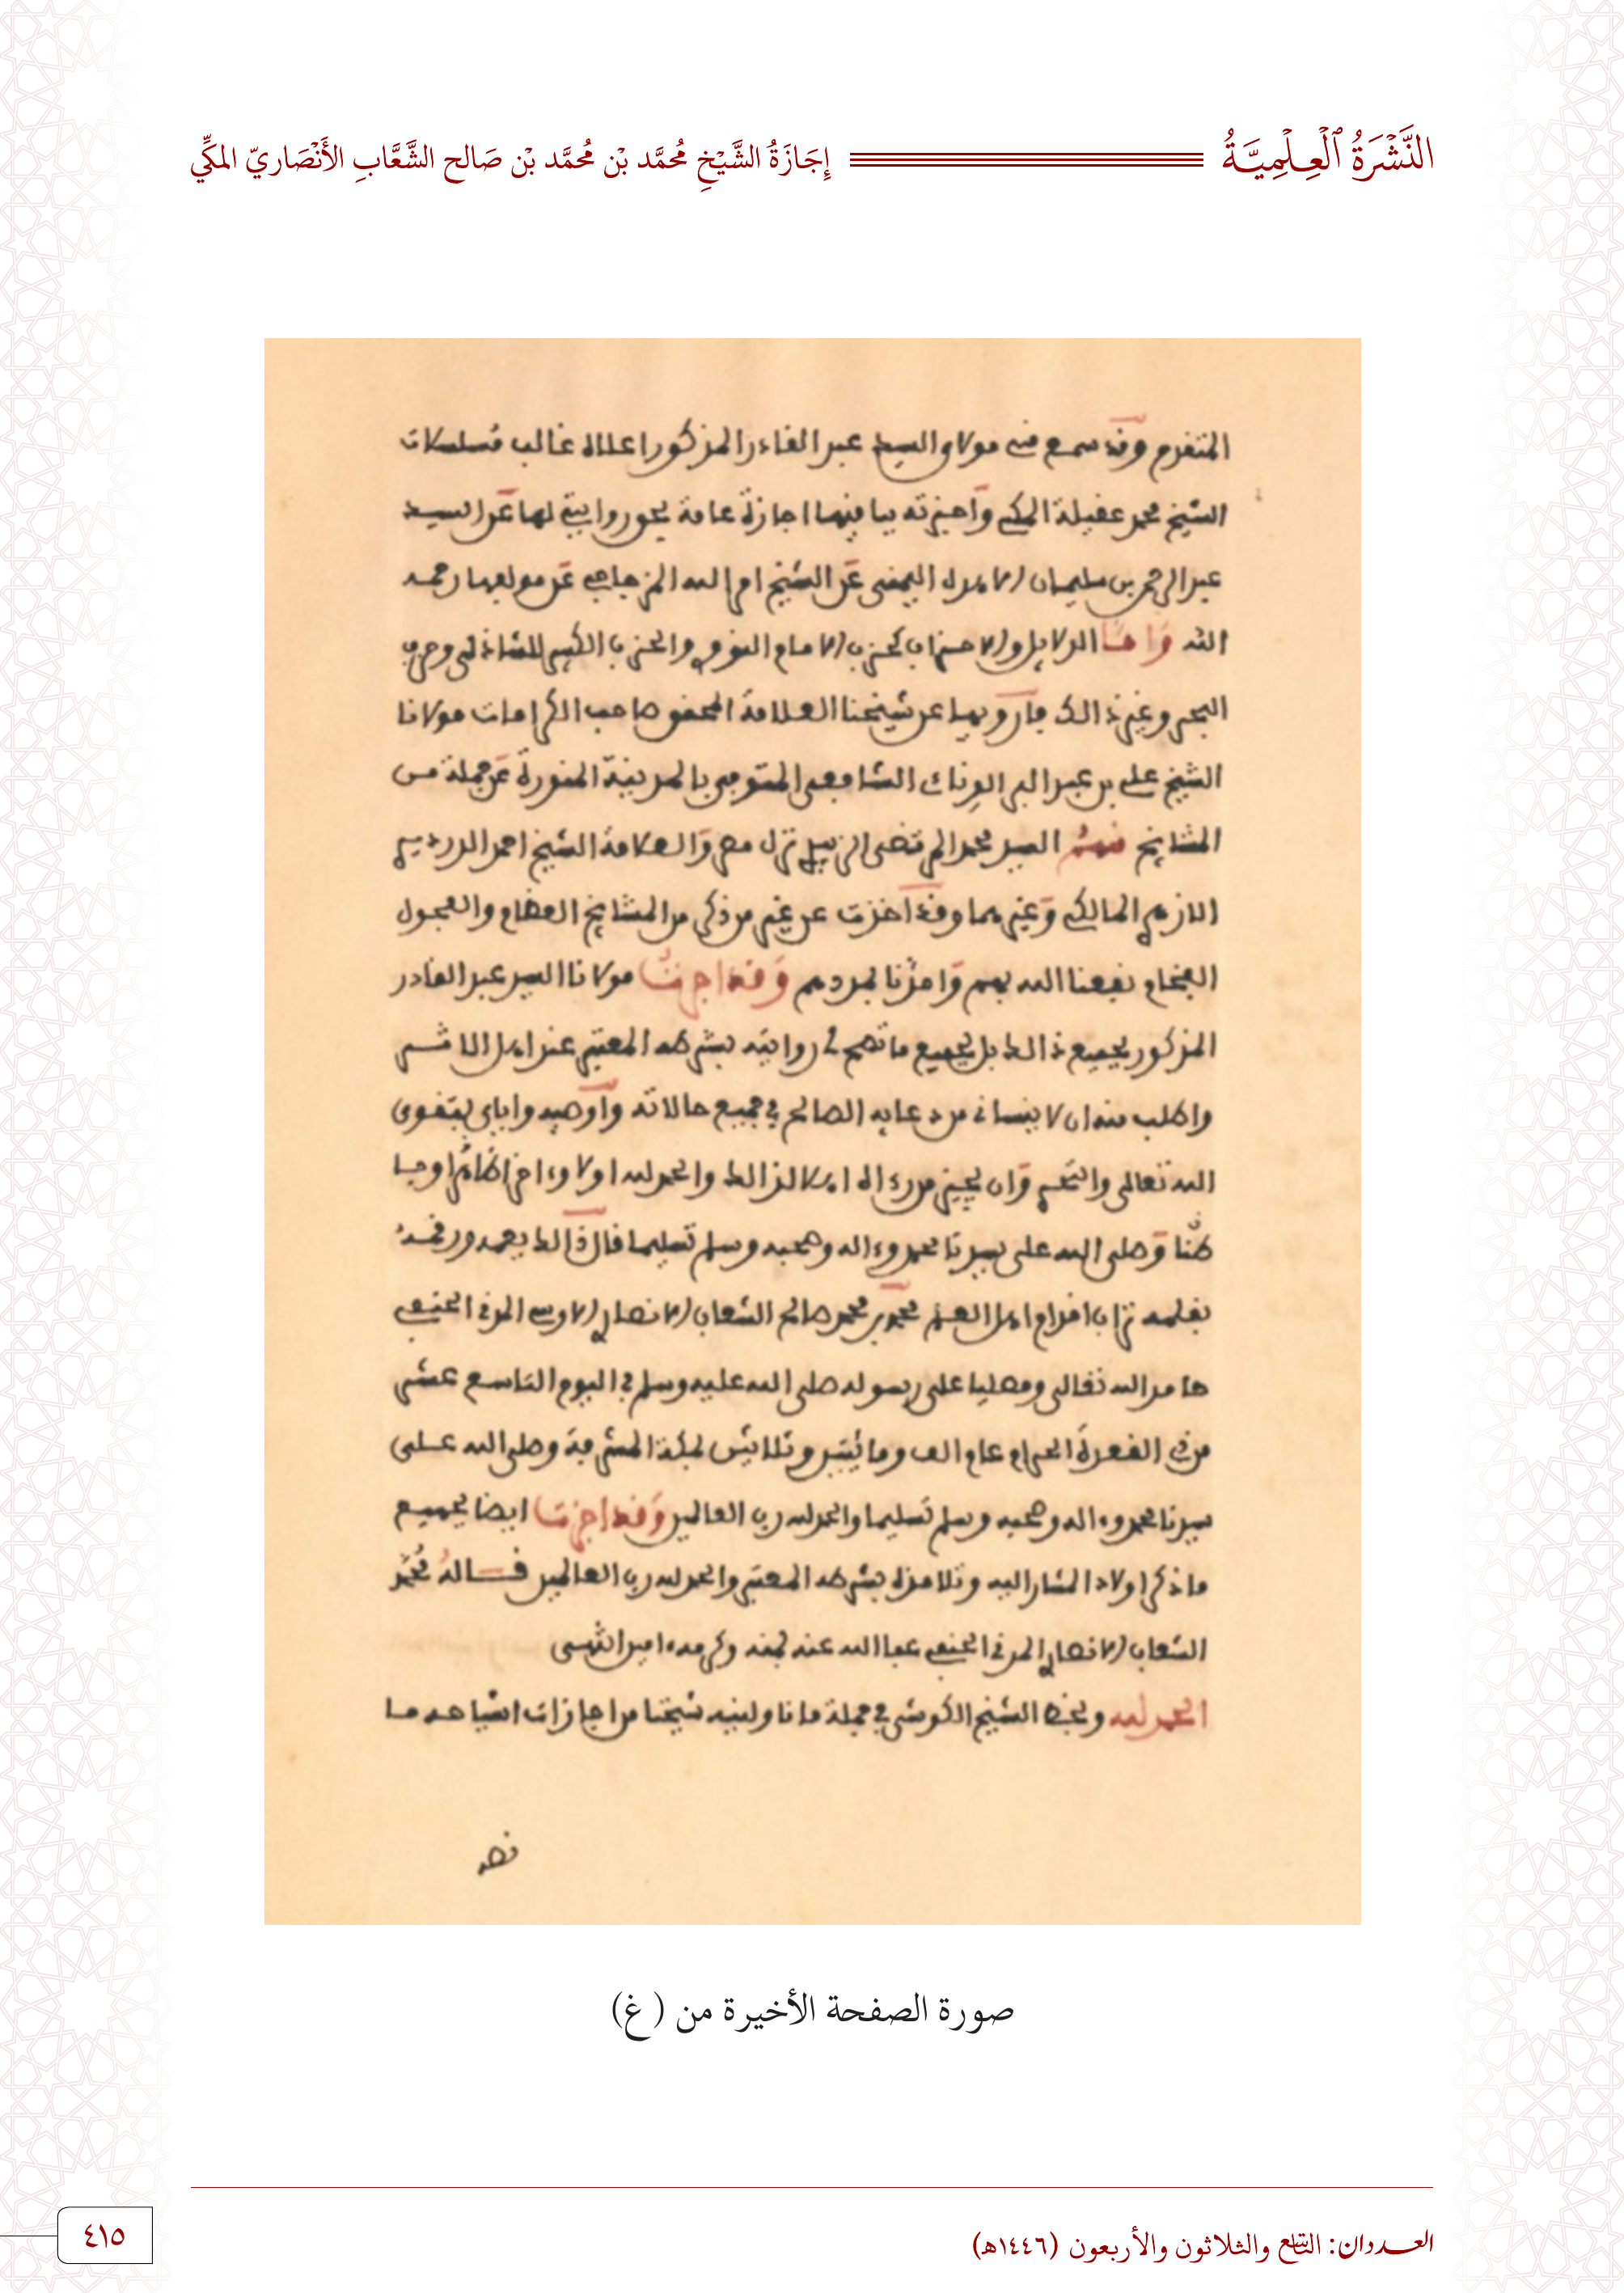 النَّشْرَةُ ٱلْعِلْمِيَّةُ
إِجَازَةُ الشَّيْخِ مُحمَّد بْن مُحمَّد بْن صَالح الشَّعَّابِ الأَنْصَاريّ المكِّي
المتقدم وقد سمع مني مولاي السيد عبد القادر المذكور اعلاه غالب مسلسلات
الشيخ محمد عقيلة المكي وأجزته بباقيها اجازة عامة بحق روايتي لها عن السيد
عبد الرحمن بن سليمان الاهدل اليمني عن الشيخ امر الله المزجاجي عن مولفها رحمه
الله وأما الدلايل والاحزاب كحزب الامام النووي والحزب الكبير للشاذلي وحزب
البحر وغير ذالك فأرويها عن شيخنا العلامة المحقق صاحب الكرامات مولانا
الشيخ علي بن عبد البر الونائ الشافعي المتوفي بالمدينة المنورة عن جملة من
المشايخ منهم السيد محمد المرتضى الزبيدي نزل مصر والعلامة الشيخ احمد الدردير
الازهري المالكي وغيرهما وقد اخذت عن غير من ذكر من المشايخ العظام والفحول
الفخام نفعنا الله بهم وامدنا بمددهم وقد اجزت مولانا السيد عبد القادر
المذكور بجميع ذالك بل بجميع ما تصح لي روايته بشرطه المعتبر عند اهل الاثر
واطلب منه ان لا ينساني من دعايه الصالح في جميع حالاته وأوصيه واياي بتقوى
الله تعالى وان يجيز من رءاه اهلا لذالك والحمد لله اولا وءاخرا ظاهرا وبا
طنا وصلى الله على سيدنا محمد وءاله وصحبه وسلم تسليما قال ذالك بفمه ورقمه
بقلمه تراب اقدام اهل العلم محمد بن محمد صالح الشعاب الانصاري الاوسي المدني الحنفي
حامد الله تعالى ومصليا على رسوله صلى الله عليه وسلم في اليوم التاسع عشر
من ذي القعدة الحرام عام الف ومائتين وثلاثين بمكة المشرفة وصلى الله على
سيدنا محمد وءاله وصحبه وسلم تسليما والحمد لله رب العالمين وقد اجزت ايضا بجميع
ما ذكر اولاد المشار اليه وتلامذة بشرطه المعتبر والحمد لله رب العالمين قاله محمد
الشعاب الانصاري المدني الحنفي عفا الله عنه بمنه وكرمه ءامين انتهى
الحمد لله وبخط الشيخ الكوشي في جملة ما ناولنيه شيخنا من اجازات اشياخه ما
نصه
صورة الصفحة الأخيرة من (غ)
العددان: التاسع والثلاثون والأربعون (١٤٤٦هـ)
٤١٥